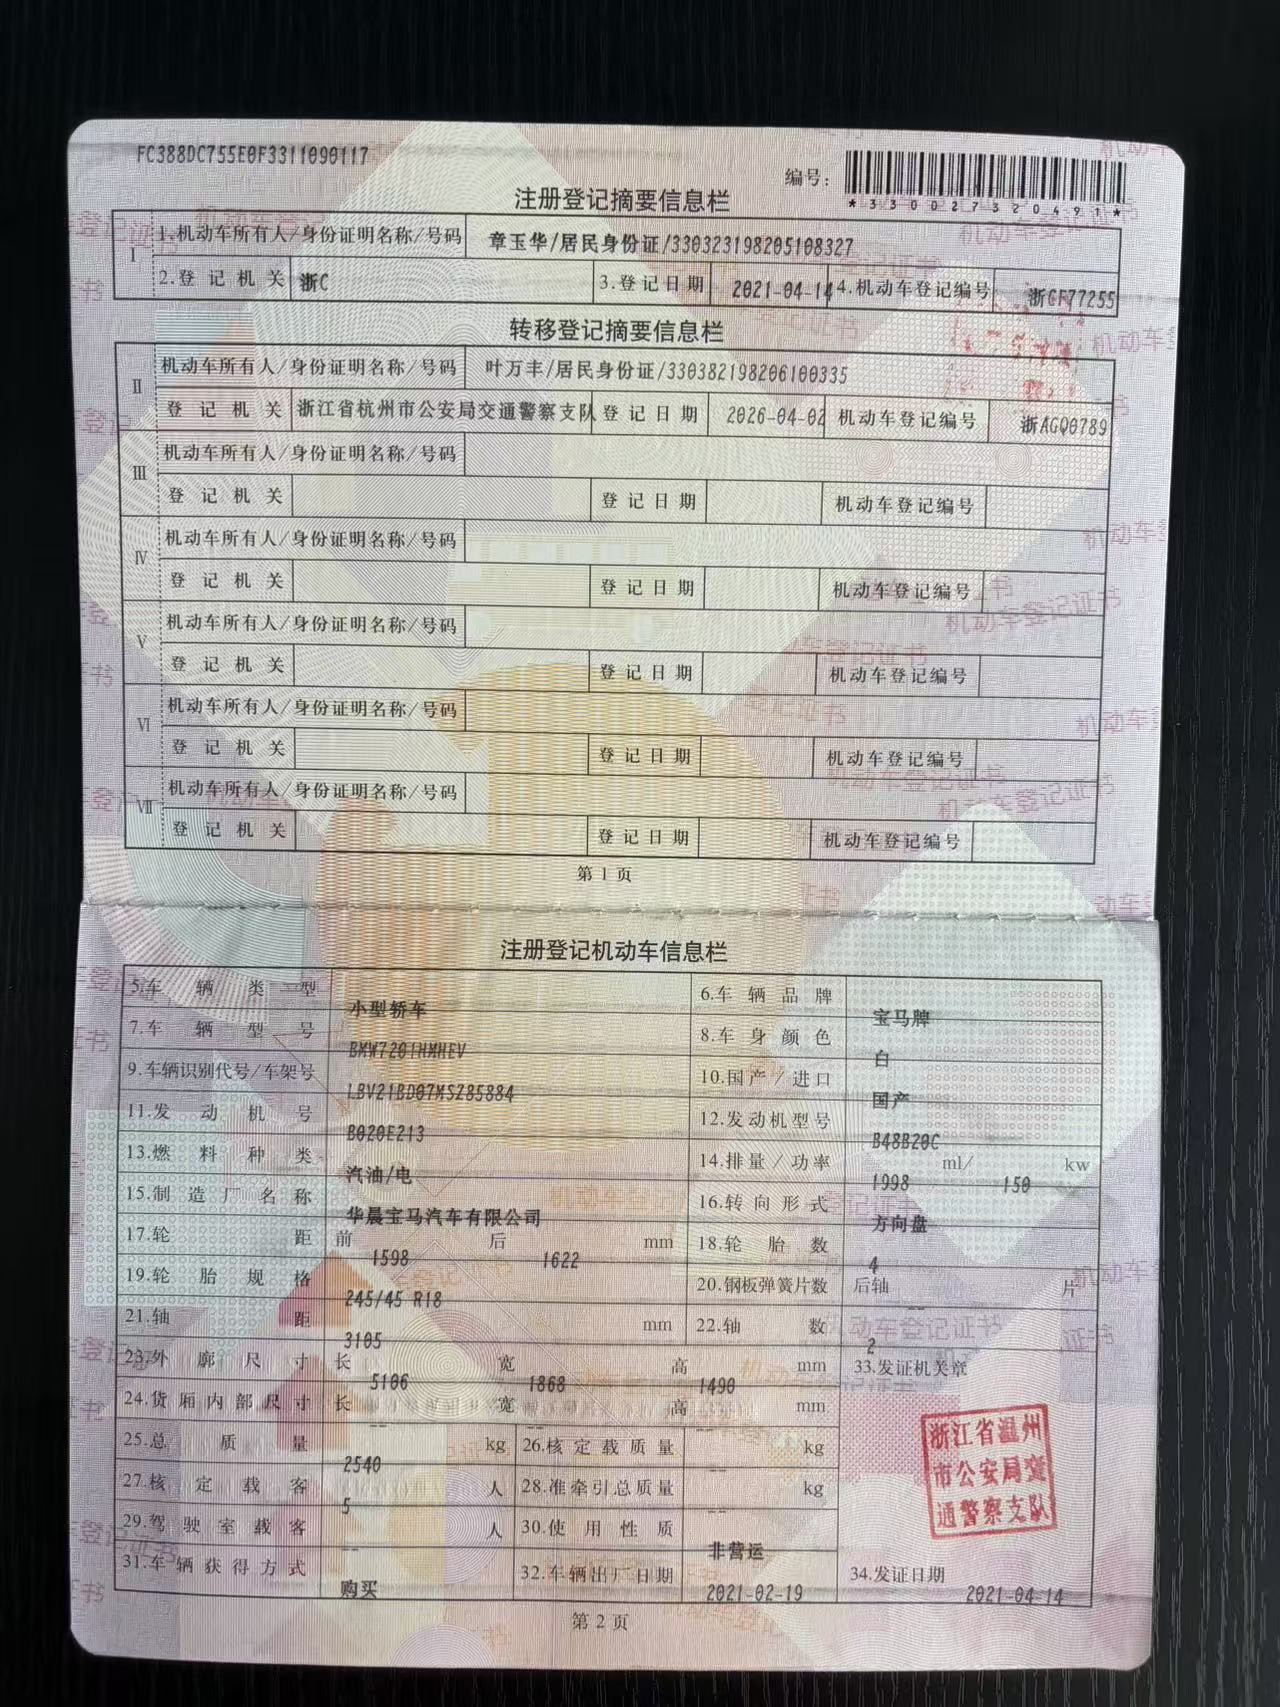 FC388DC755E0F3311090117
编号：
*330027320491*
注册登记摘要信息栏
Ⅰ 1.机动车所有人/身份证明名称/号码 章玉华/居民身份证/330323198205108327
2.登记机关 浙C 3.登记日期 2021-04-14 4.机动车登记编号 浙CF77255
转移登记摘要信息栏
Ⅱ 机动车所有人/身份证明名称/号码 叶万丰/居民身份证/330382198206100335
登记机关 浙江省杭州市公安局交通警察支队 登记日期 2026-04-02 机动车登记编号 浙AGQ0789
Ⅲ 机动车所有人/身份证明名称/号码
登记机关 登记日期 机动车登记编号
Ⅳ 机动车所有人/身份证明名称/号码
登记机关 登记日期 机动车登记编号
Ⅴ 机动车所有人/身份证明名称/号码
登记机关 登记日期 机动车登记编号
Ⅵ 机动车所有人/身份证明名称/号码
登记机关 登记日期 机动车登记编号
Ⅶ 机动车所有人/身份证明名称/号码
登记机关 登记日期 机动车登记编号
第 1 页
注册登记机动车信息栏
5.车辆类型 小型轿车 6.车辆品牌 宝马牌
7.车辆型号 BMW7201HMHEV 8.车身颜色 白
9.车辆识别代号/车架号 LBV21BD07MSZ85884 10.国产/进口 国产
11.发动机号 B020E213 12.发动机型号 B48B20C
13.燃料种类 汽油/电 14.排量/功率 1998 ml/ 150 kw
15.制造厂名称 华晨宝马汽车有限公司 16.转向形式 方向盘
17.轮距 前 1598 后 1622 mm 18.轮胎数 4
19.轮胎规格 245/45 R18 20.钢板弹簧片数 后轴 -- 片
21.轴距 3105 mm 22.轴数 2
23.外廓尺寸 长 5106 宽 1868 高 1490 mm 33.发证机关章
24.货厢内部尺寸 长 -- 宽 -- 高 -- mm
25.总质量 2540 kg 26.核定载质量 -- kg
浙江省温州
市公安局交
通警察支队
27.核定载客 5 人 28.准牵引总质量 -- kg
29.驾驶室载客 -- 人 30.使用性质 非营运
31.车辆获得方式 购买 32.车辆出厂日期 2021-02-19 34.发证日期 2021-04-14
第 2 页